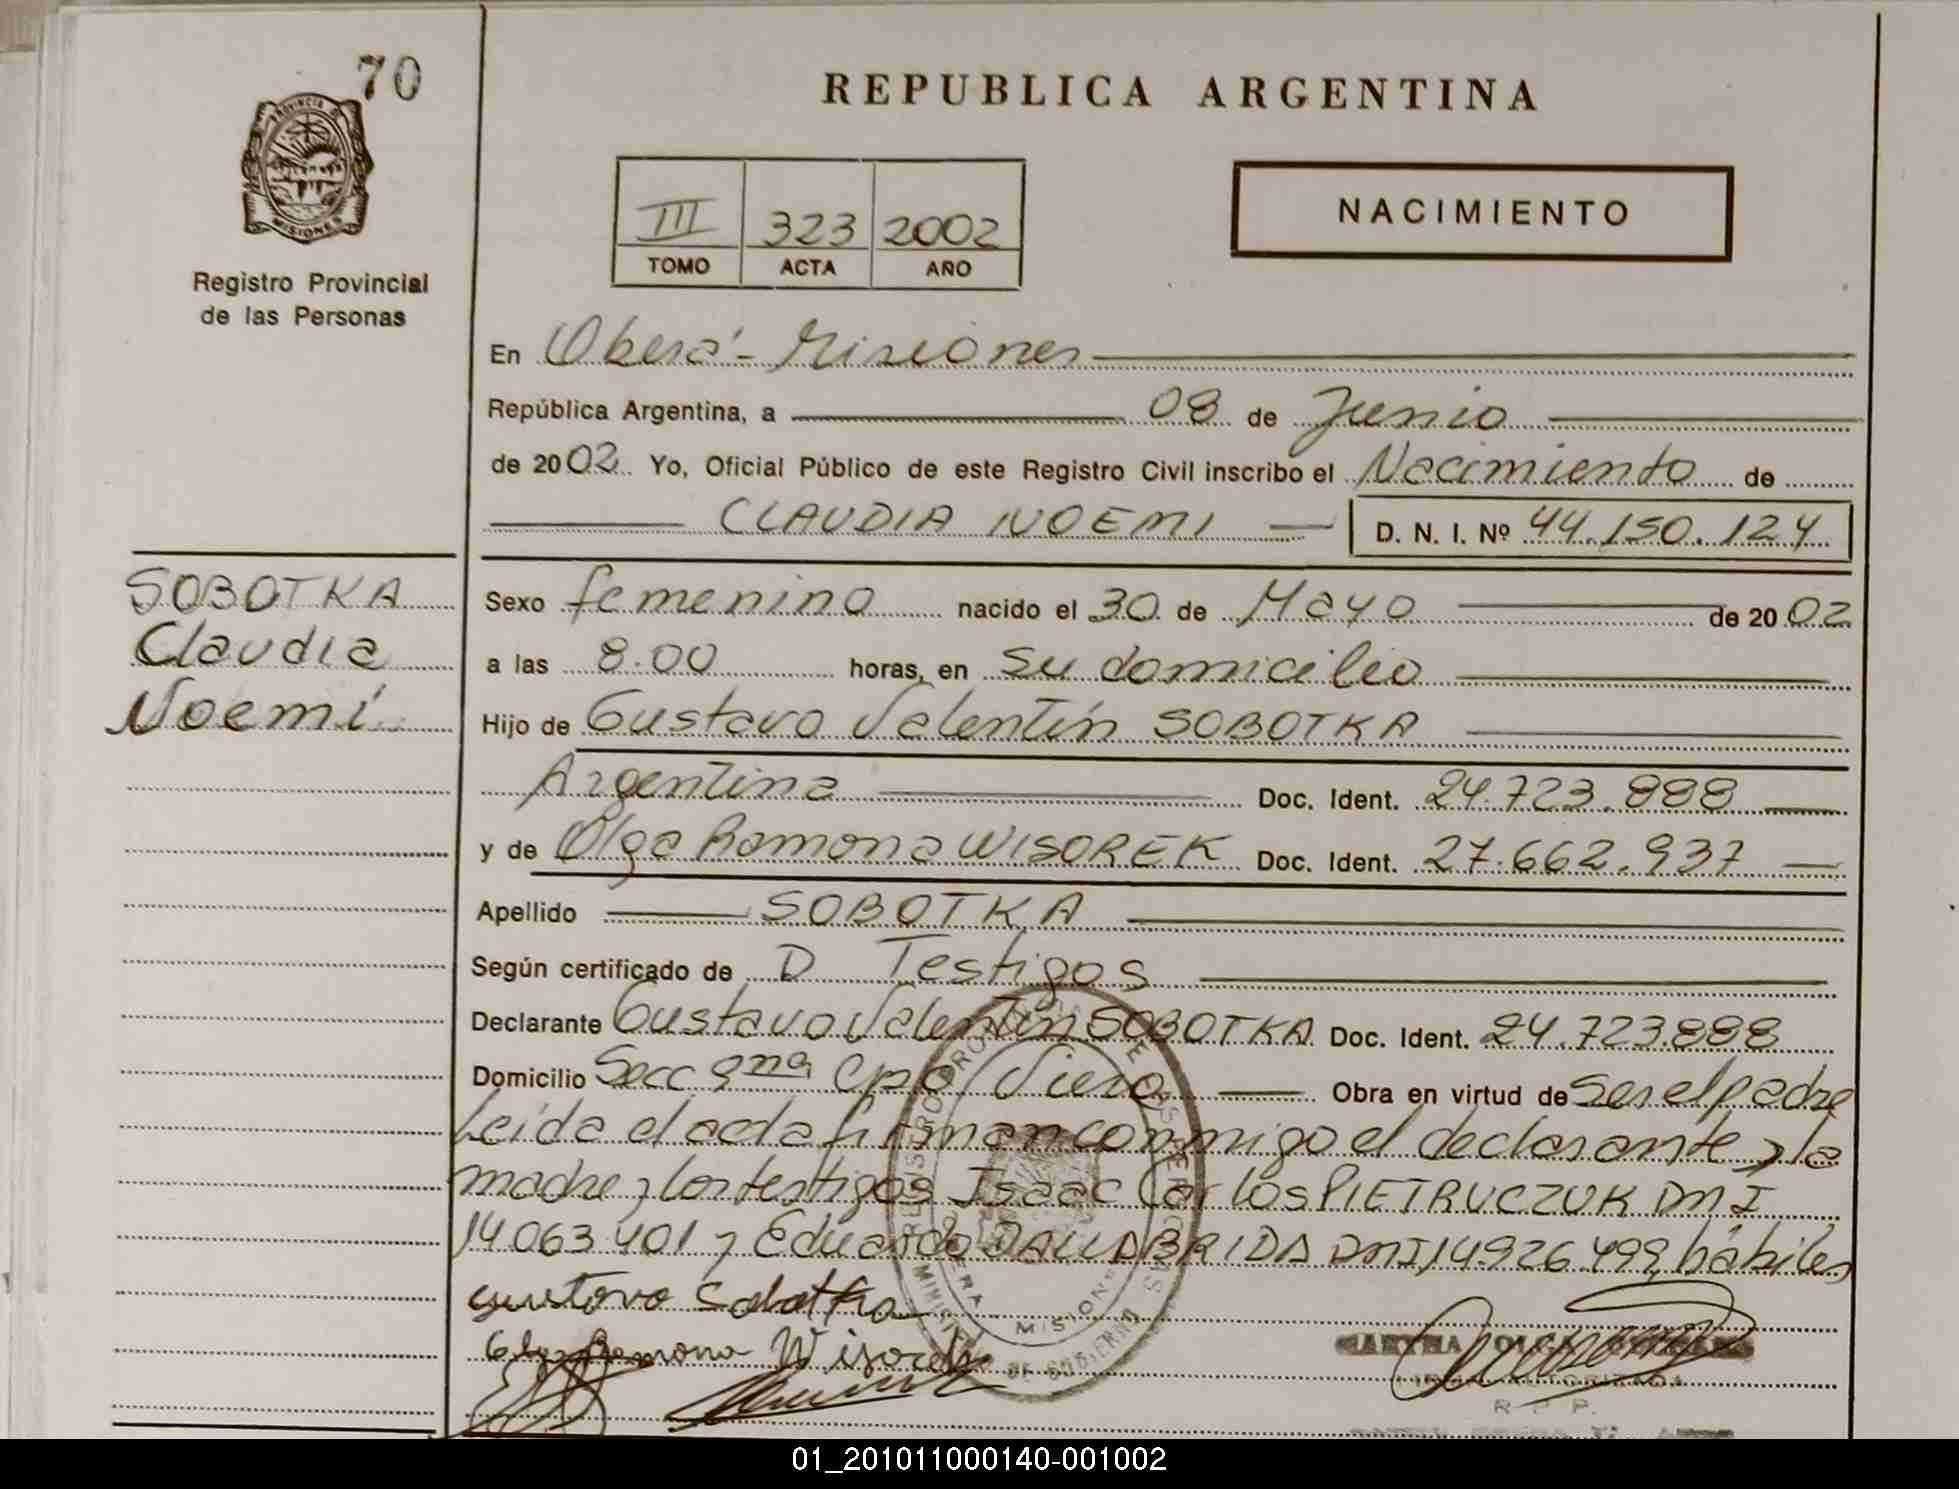 70
PROVINCIA DE
MISIONES
Registro Provincial
de las Personas
REPUBLICA ARGENTINA
III 323 2002
TOMO ACTA AÑO
NACIMIENTO
En Oberá - Misiones
República Argentina, a 08 de Junio
de 2002 Yo, Oficial Público de este Registro Civil inscribo el Nacimiento de
CLAUDIA NOEMI D. N. I. Nº 44.150.124
SOBOTKA
Claudia
Noemí
Sexo femenino nacido el 30 de Mayo de 2002
a las 8.00 horas, en su domicilio
Hijo de Gustavo Valentín SOBOTKA
Argentina Doc. Ident. 24.723.888
y de Olga Ramona WISOREK Doc. Ident. 27.662.937
Apellido SOBOTKA
Según certificado de D Testigos
Declarante Gustavo Valentín SOBOTKA Doc. Ident. 24.723.888
Domicilio Secc 9na Cpo Viera Obra en virtud de ser el padre
Leída el acta firman conmigo el declarante y la
madre y los testigos Isaac Carlos PIETRUCZUK DNI
14063401 y Eduardo DALLABRIDA DNI 14.926.499, hábiles
Gustavo Sobotka
Olga Ramona Wisorek
MISIONES
R. P. P.
01_201011000140-001002